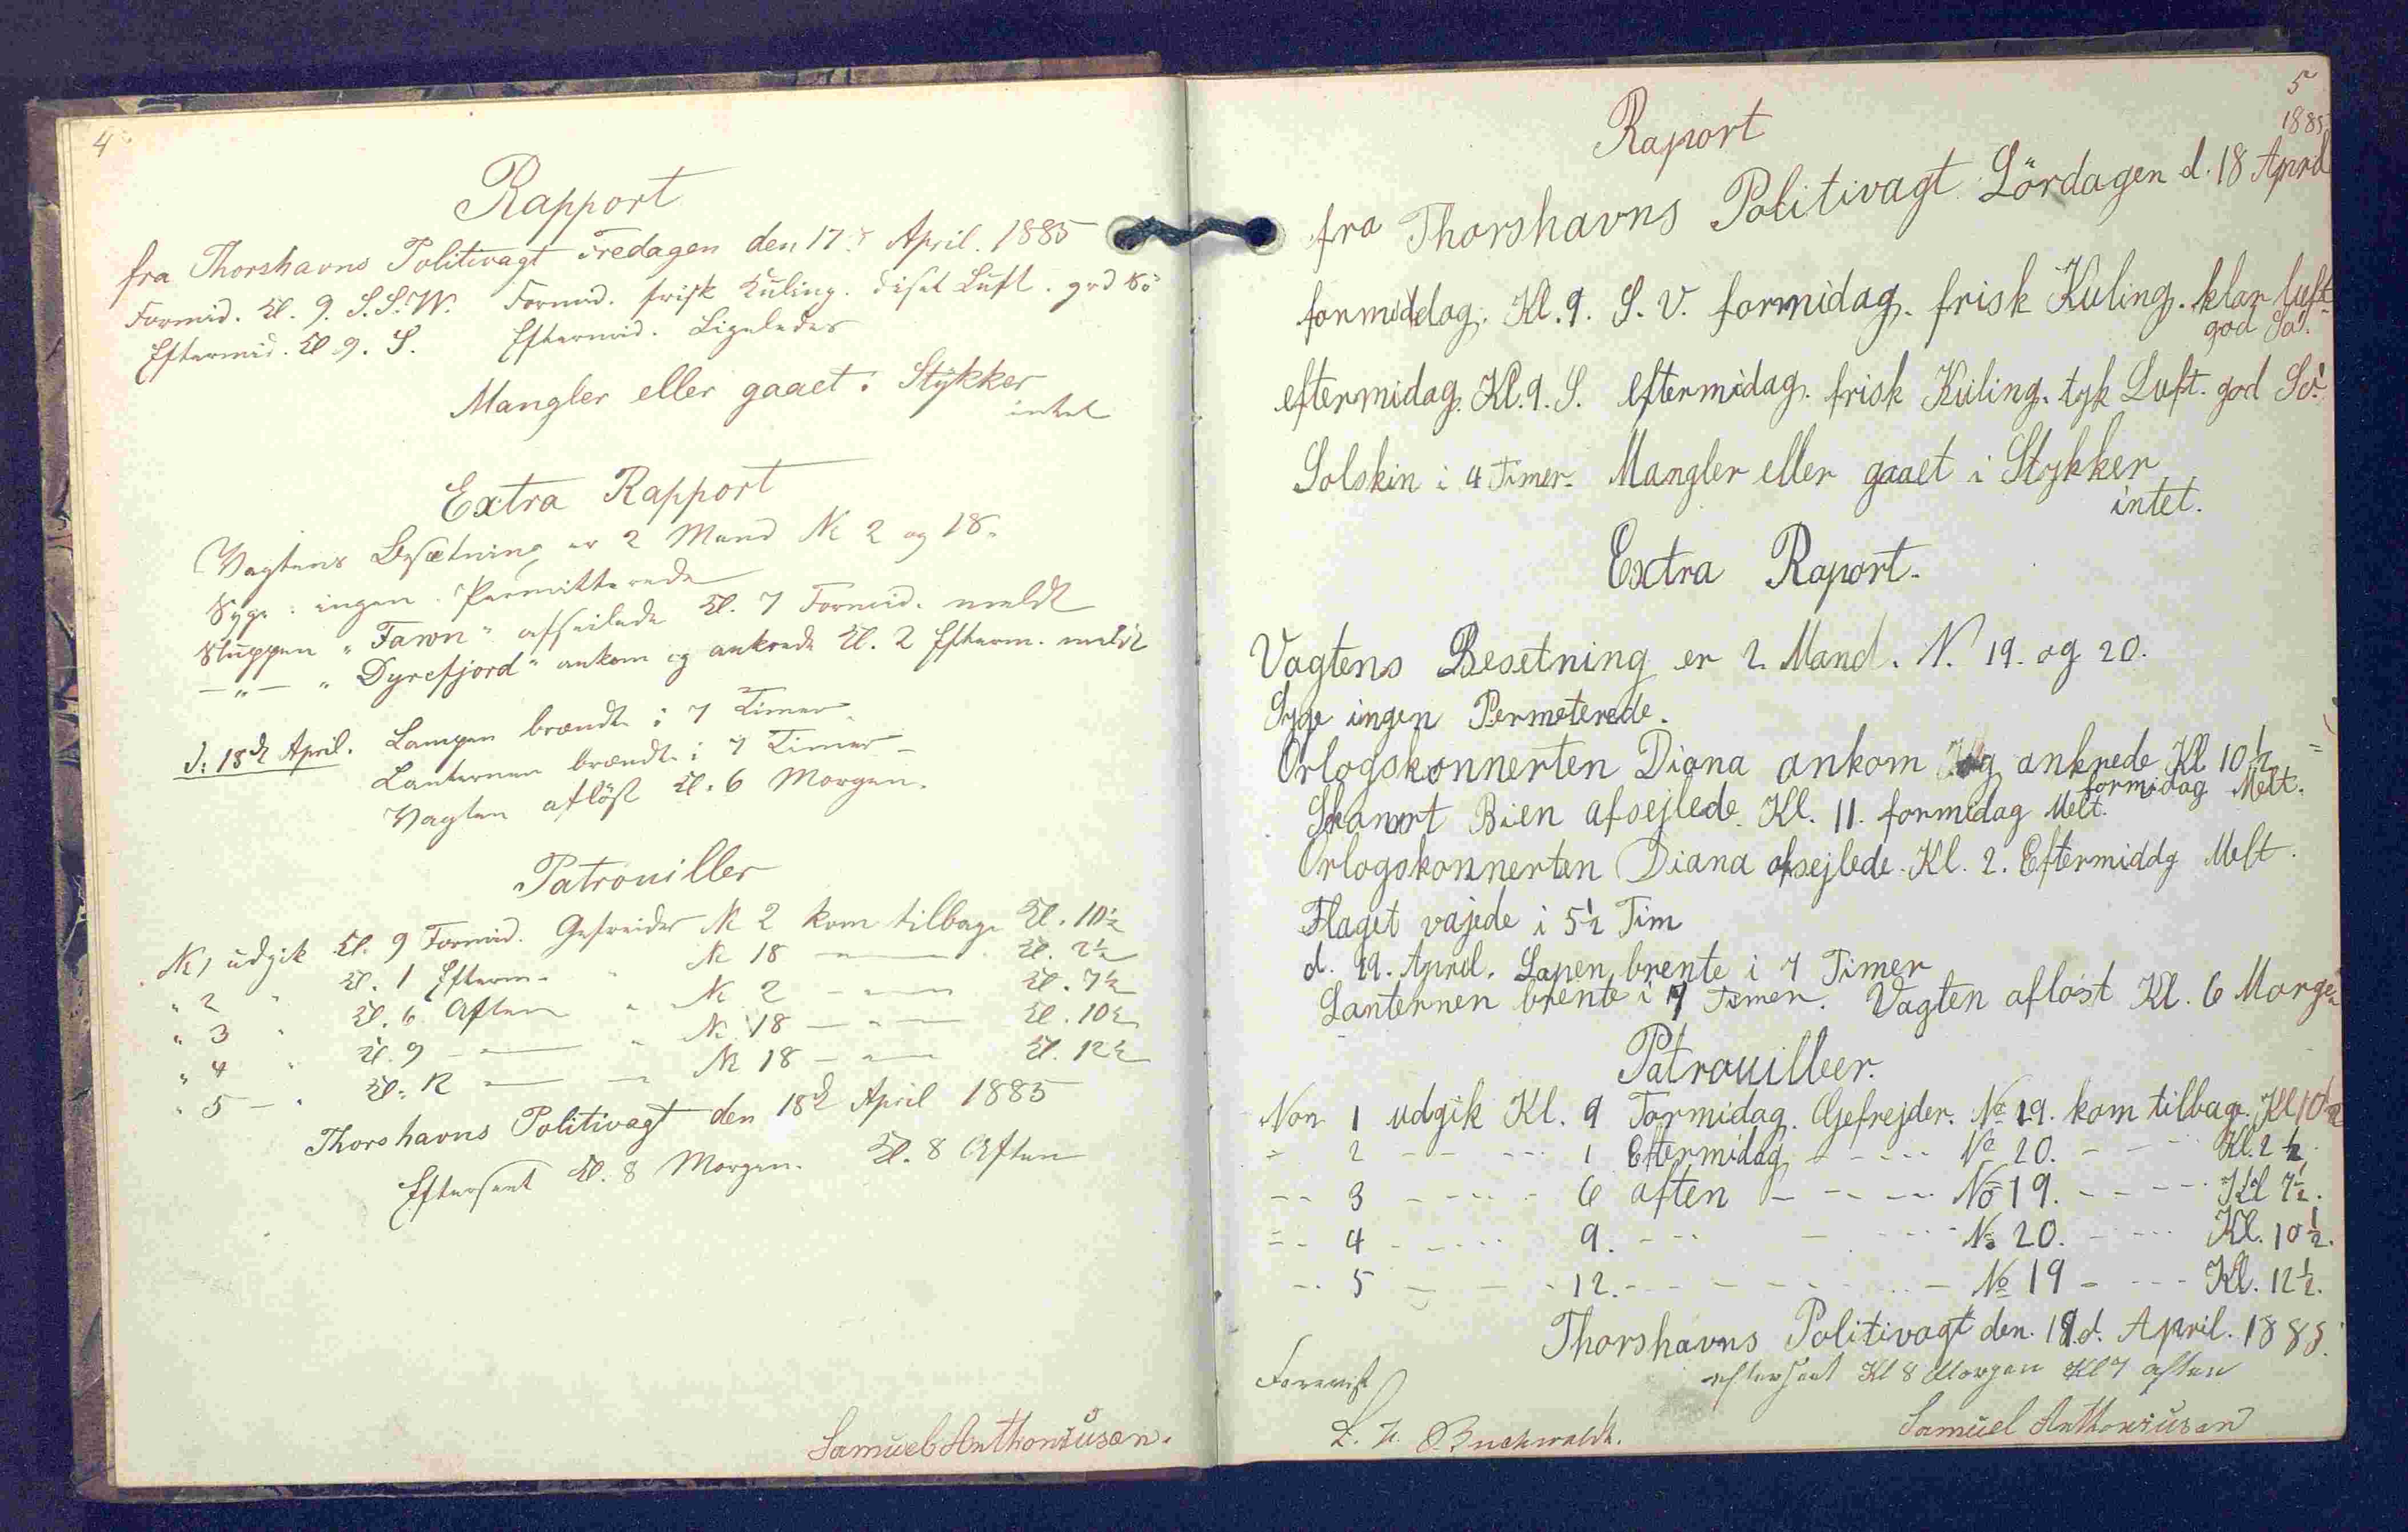 4
Rapport
fra Thorshavns Politivagt Fredagen den 17d April. 1885
Formid. Kl. 9. S.S.W. Formid. frisk Kuling. diset Luft. god Sö
Eftermid. Kl 9. S. Eftermid. Ligeledes
Mangler eller gaaet i Stÿkker
intet
Extra Rapport
Vagtens Besætning er 2 Mand No 2 og 18.
Syge: ingen. Permitterede
Sluppen "Fawn" afseilede Kl. 7 Formid. meldt
—"— "Dyrefjord" ankom og ankrede Kl. 2 Efterm. meldt
d: 18d April. Lampen brændte i 7 Timer.
Lanternen brændte i 7 Timer —
Vagten aflöst Kl. 6 Morgen.
Patrouiller
No 1 udgik Kl. 9 Formid. Gefreider No 2 kom tilbage Kl. 10½
" 2 " Kl. 1 Efterm. " No 18 — " — Kl. 2½
" 3 " Kl. 6 Aften " No 2 — " — Kl. 7½
" 4 " Kl. 9 — " — " No 18 — " — Kl. 10½
" 5 — " Kl. 12 — " — " No 18 — " — Kl. 12½
Thorshavns Politivagt den 18d April 1885
Efterseet Kl. 8 Morgen. Kl. 8 Aften
Samuel Anthoniusen.
5
1885
Raport
fra Thorshavns Politivagt Lördagen d. 18 April
formiddag. Kl. 9. S.V. formidag. frisk Kuling. klar luft
god Sö.
eftermidag. Kl. 9. S. eftermidag. frisk Kuling. tyk Luft. god Sö.
Solskin i 4 Timer. Mangler eller gaaet i Stykker
intet.
Extra Raport.
Vagtens Besetning er 2 Mand. N. 19. og 20.
Syge ingen Permeterede.
Orlogskonnerten Diana ankom og ankrede Kl 10½
formidag Melt.
Skonort Bien afsejlede. Kl. 11. formidag Melt.
Orlogskonnerten Diana afsejlede. Kl. 2. Eftermiddg Melt.
Flaget vajede i 5½ Tim
d. 19. April. Lapen brente i 7 Timer
Lanternen brente i 7 Timer. Vagten afløst Kl. 6 Morgen
Patrouilleer.
Non 1 udgik Kl. 9 Formidag. Gefrejder. No 19. kom tilbage. Kl 10½
- 2 - - - - 1 Eftermidag - - - - No 20. - - - Kl. 2½.
- - 3 - - - - 6 aften - - - - No 19. - - - - Kl 7½.
- - 4 - - - - 9. - - - - - No 20. - - - - Kl. 10½.
- - 5 - - - - 12. - - - - - No 19 - - - - Kl. 12½.
Thorshavns Politivagt den. 19 d. April. 1885.
Forevist efterseet Kl 8 Morgen Kl 7 aften
Buchwaldt. Samuel Anthoniusen